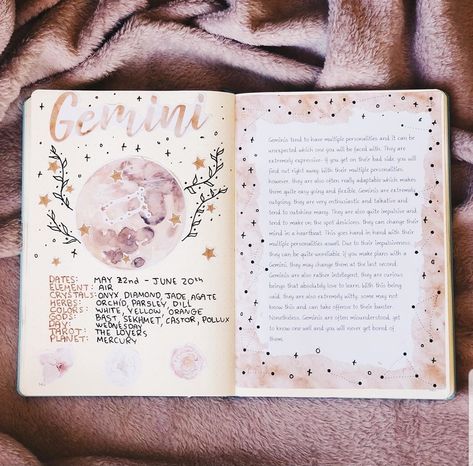 Gemini
DATES: MAY 22nd - JUNE 20th
ELEMENT: AIR
CRYSTALS: ONYX, DIAMOND, JADE, AGATE
HERBS: ORCHID, PARSLEY, DILL
COLORS: WHITE, YELLOW, ORANGE
GODS: BAST, SEKHMET, CASTOR, POLLUX
DAY: WEDNESDAY
TAROT: THE LOVERS
PLANET: MERCURY
Geminis tend to have multiple personalities and it can be
unexpected which one you will be faced with. They are
extremely expressive- if you get on their bad side, you will
find out right away. With their multiple personalities,
however, they are also often really adaptable which makes
them quite easy going and flexible. Geminis are extremely
outgoing, they are very enthusiastic and talkative and
tend to outshine many. They are also quite impulsive and
tend to make on the spot decisions, they can change their
mind in a heartbeat. This goes hand in hand with their
multiple personalities usual. Due to their impulsiveness
they can be quite unreliable, if you make plans with a
Gemini, they may change them at the last second.
Geminis are also rather intelligent, they are curious
beings that absolutely love to learn. With this being
said, they are also extremely witty, some may not
know this and can take offense to their banter.
Nonetheless, Geminis are often misunderstood, get
to know one well and you will never get bored of
them.